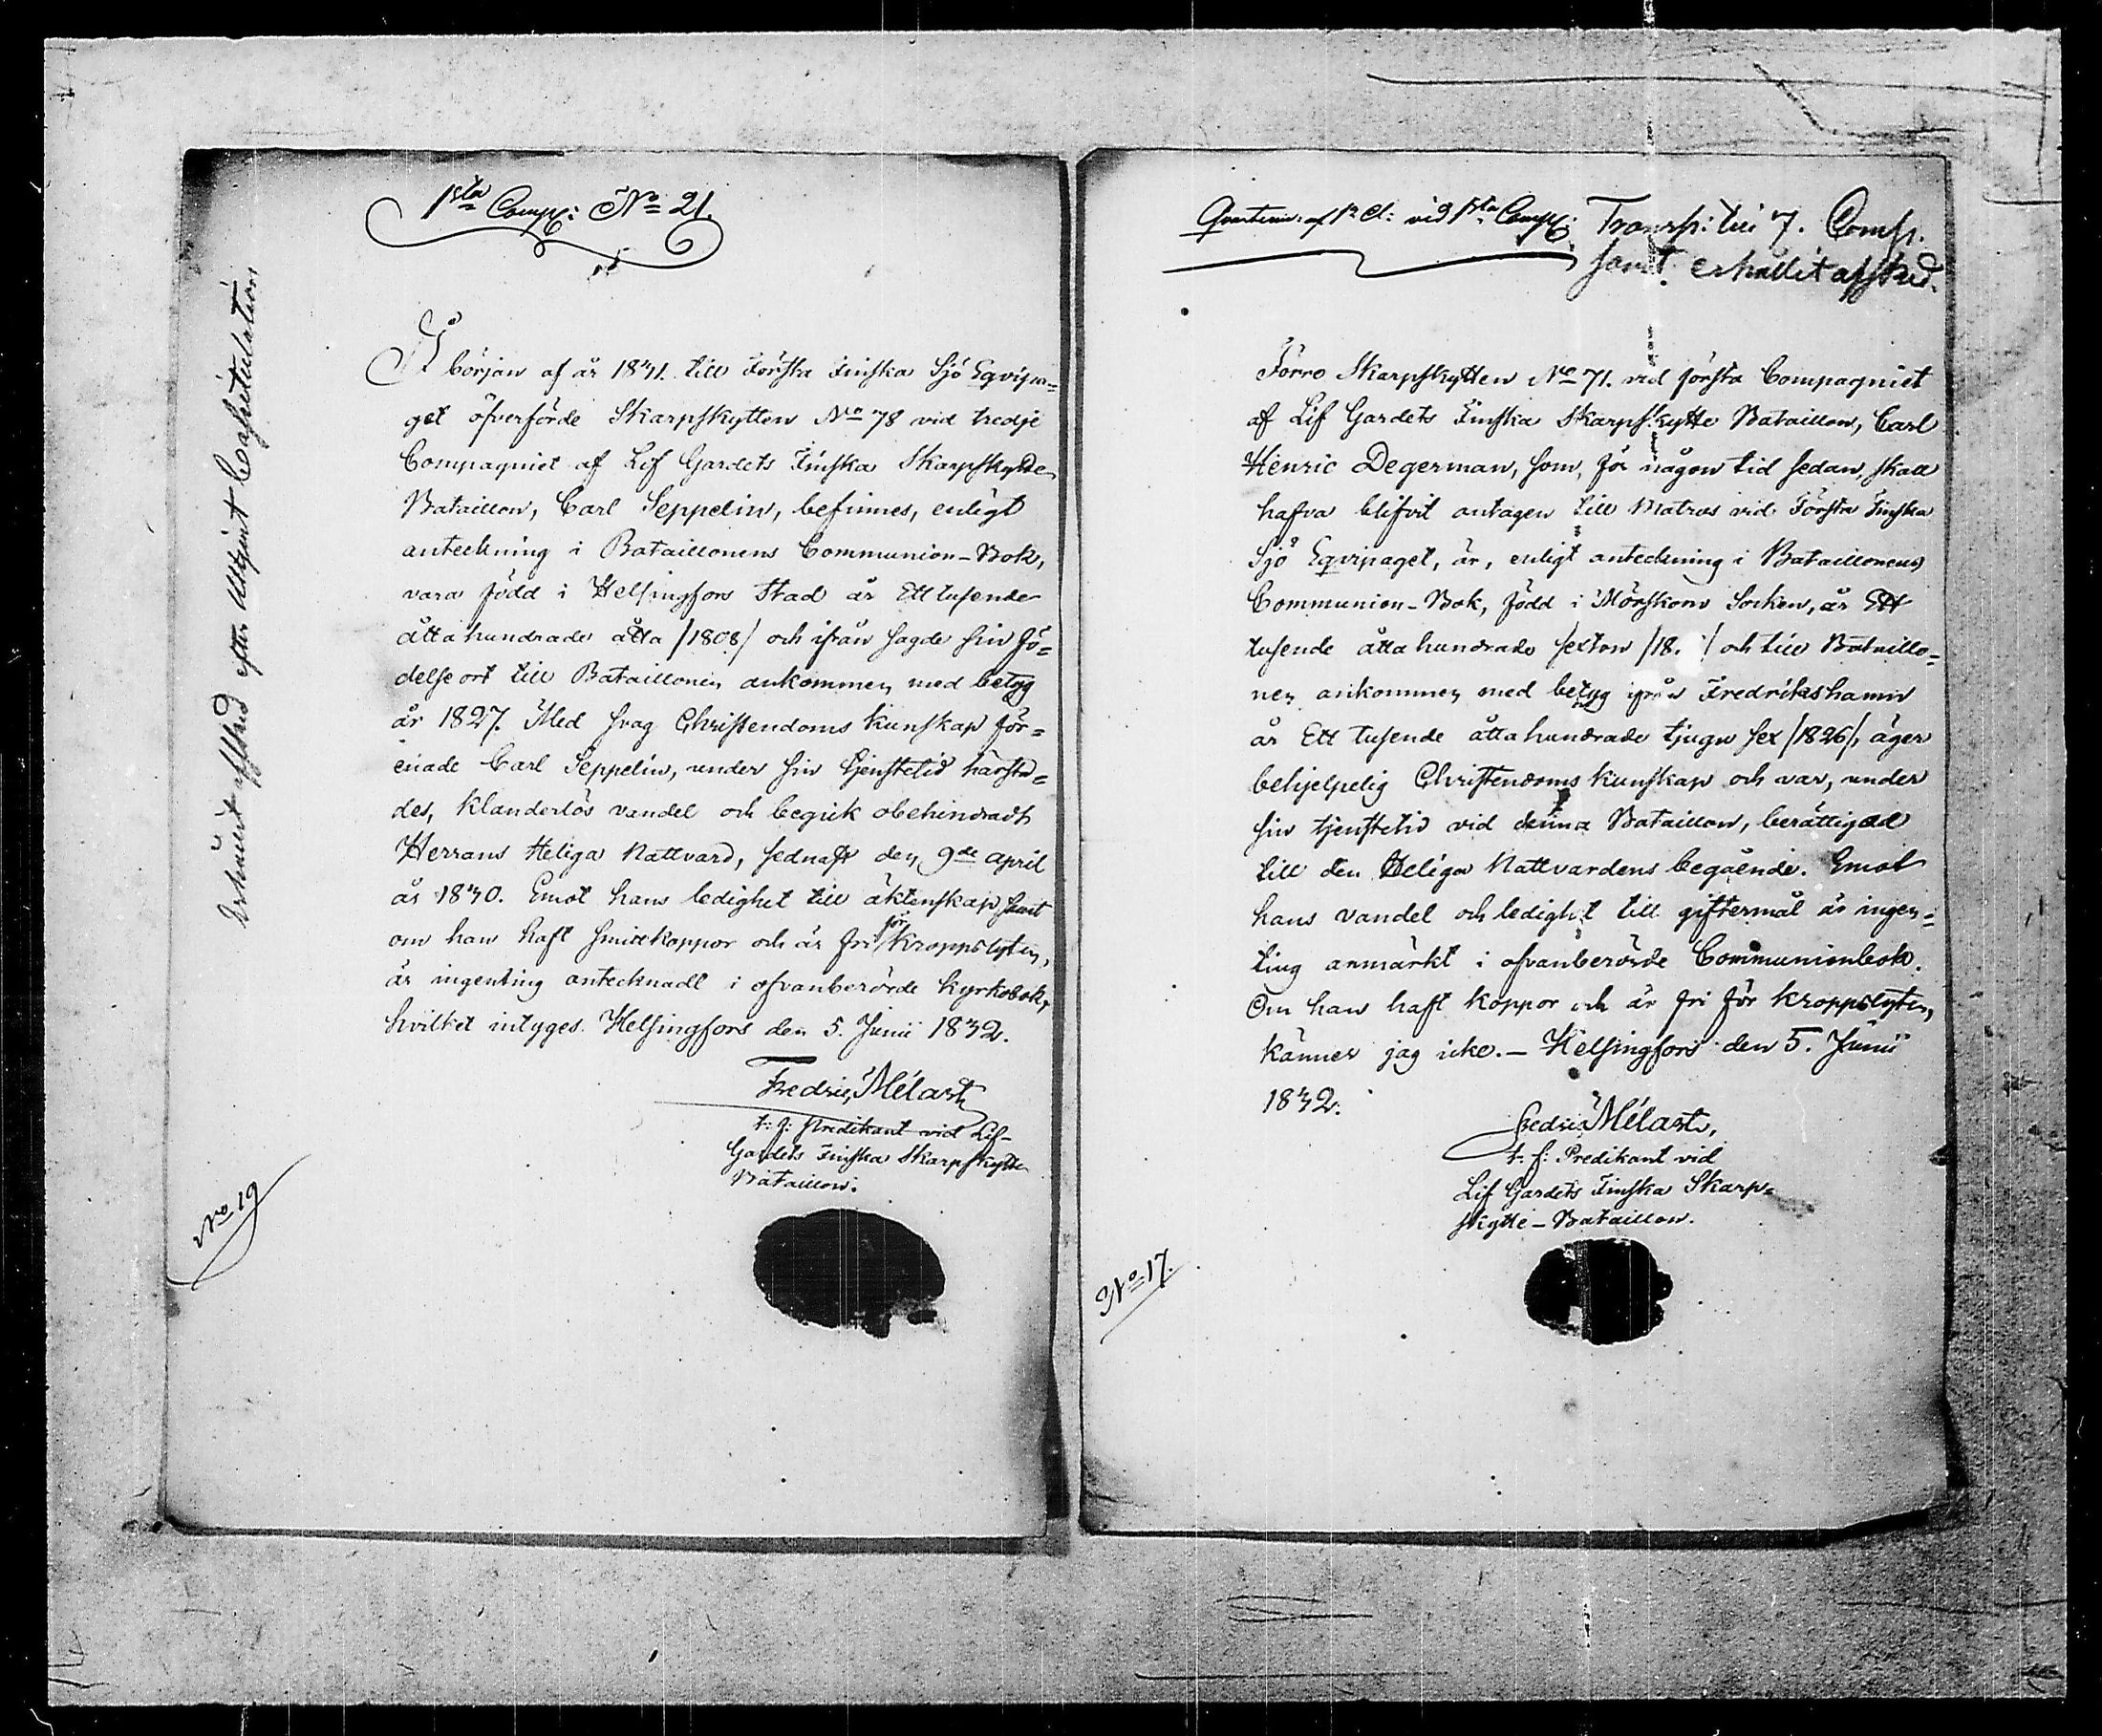 1sta Comp: No 21.
Erhållit afsked efter uttjent Capitulation
I början af år 1831. till Första Finska Sjö Eqvipa=
get öfverförde Skarpskytten No 78 vid tredje
Compagniet af Lif Gardets Finska Skarpskytte
Bataillon, Carl Seppelin, befinnes, enligt
anteckning i Bataillonens Communion-Bok,
vara född i Helsingfors Stad år Ett tusende
åttahundrade åtta /1808/ och ifrån sagde sin fö=
delseort till Bataillonen ankommen med betyg
år 1827. Med svag Christendoms kunskap för=
enade Carl Seppelin, under sin tjenstetid härstä=
des, klanderlös vandel och begick obehindradt
Herrans Heliga Nattvard, sednast den 9de april
år 1830. Emot hans ledighet till äktenskap samt
om han haft smittkoppor och är fri för kroppslyten,
är ingenting antecknadt i ofvanberörde kyrkobok,
hvilket intygas. Helsingfors den 5. Junii 1832.
Fredric Mélart
t: f: Predikant vid Lif-
Gardets Finska Skarpskytte
Bataillon.
No 19
Quarterm: af 1a Cl: vid 1sta Comp: Transp: till 7. Comp.
samt erhållit afsked.
Förre Skarpskytten No 71. vid första Compagniet
af Lif Gardets Finska Skarpskytte Bataillon, Carl
Henric Degerman, som, för någon tid sedan, skall
hafva blifvit antagen till Matros vid Första Finska
Sjö Eqvipaget, är, enligt anteckning i Bataillonens
Communion-Bok, född i Mörskom Socken, år Ett
tusende åttahundrade sexton /18. / och till Bataillo=
nen ankommen med betyg ifrån Fredrikshamn
år Ett tusende åttahundrade tjugu sex /1826/, äger
behjelpelig Christendoms kunskap och var, under
sin tjenstetid vid denna Bataillon, berättigad
till den Heliga Nattvardens begående. Emot
hans vandel och ledighet till giftermål är ingen=
ting anmärkt i ofvanberörde Communionbok.
Om han haft koppor och är fri för kroppslyten,
känner jag icke. - Helsingfors den 5. Junii
1832.
Fredric Mélart,
t: f: Predikant vid
Lif Gardets Finska Skarp=
skytte-Bataillon.
No 17.